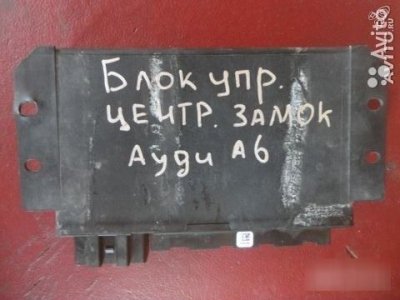 Блок упр.
центр. замок
Ауди А6
Avito